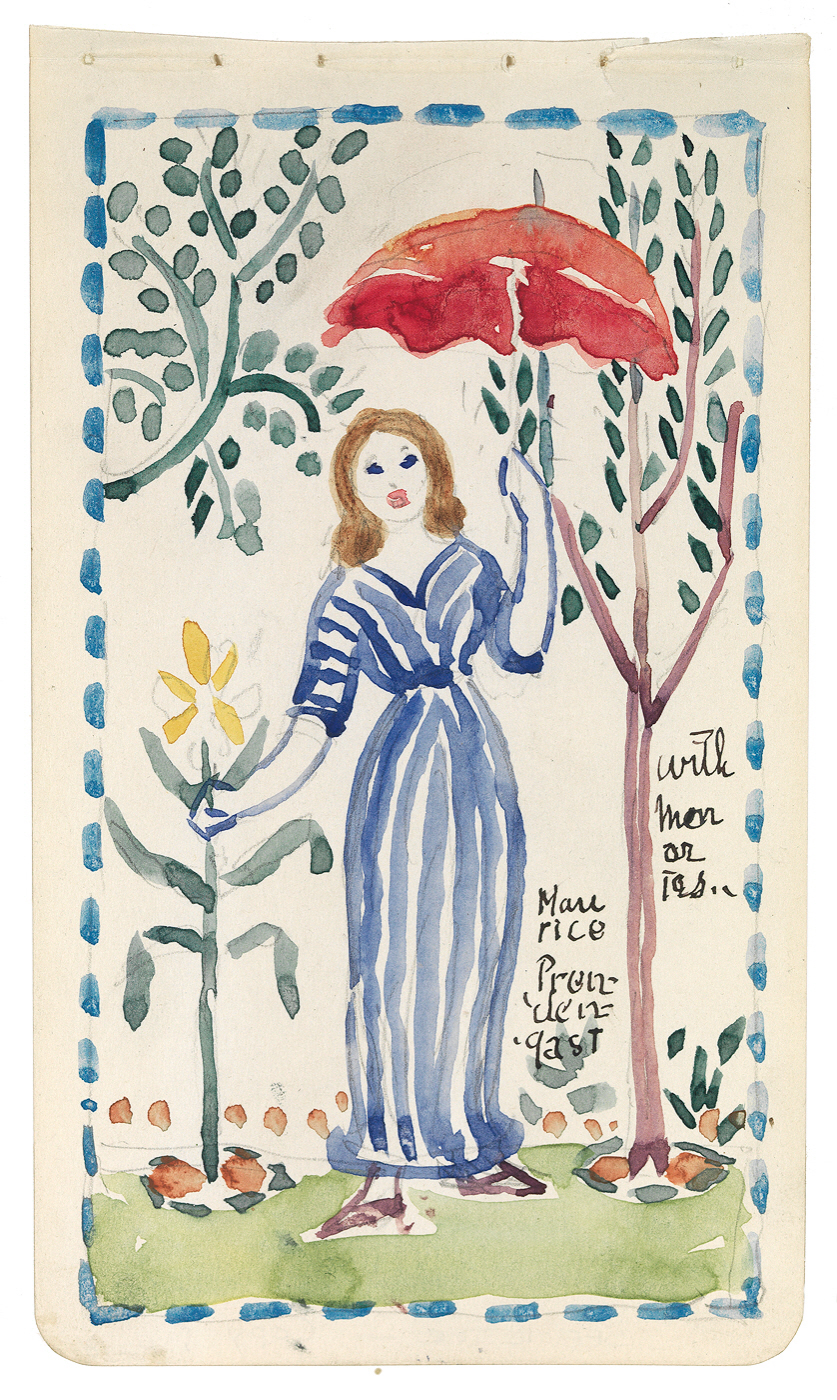 with
Mem
or
ies..
Mau
rice
Pren-
den=
gast